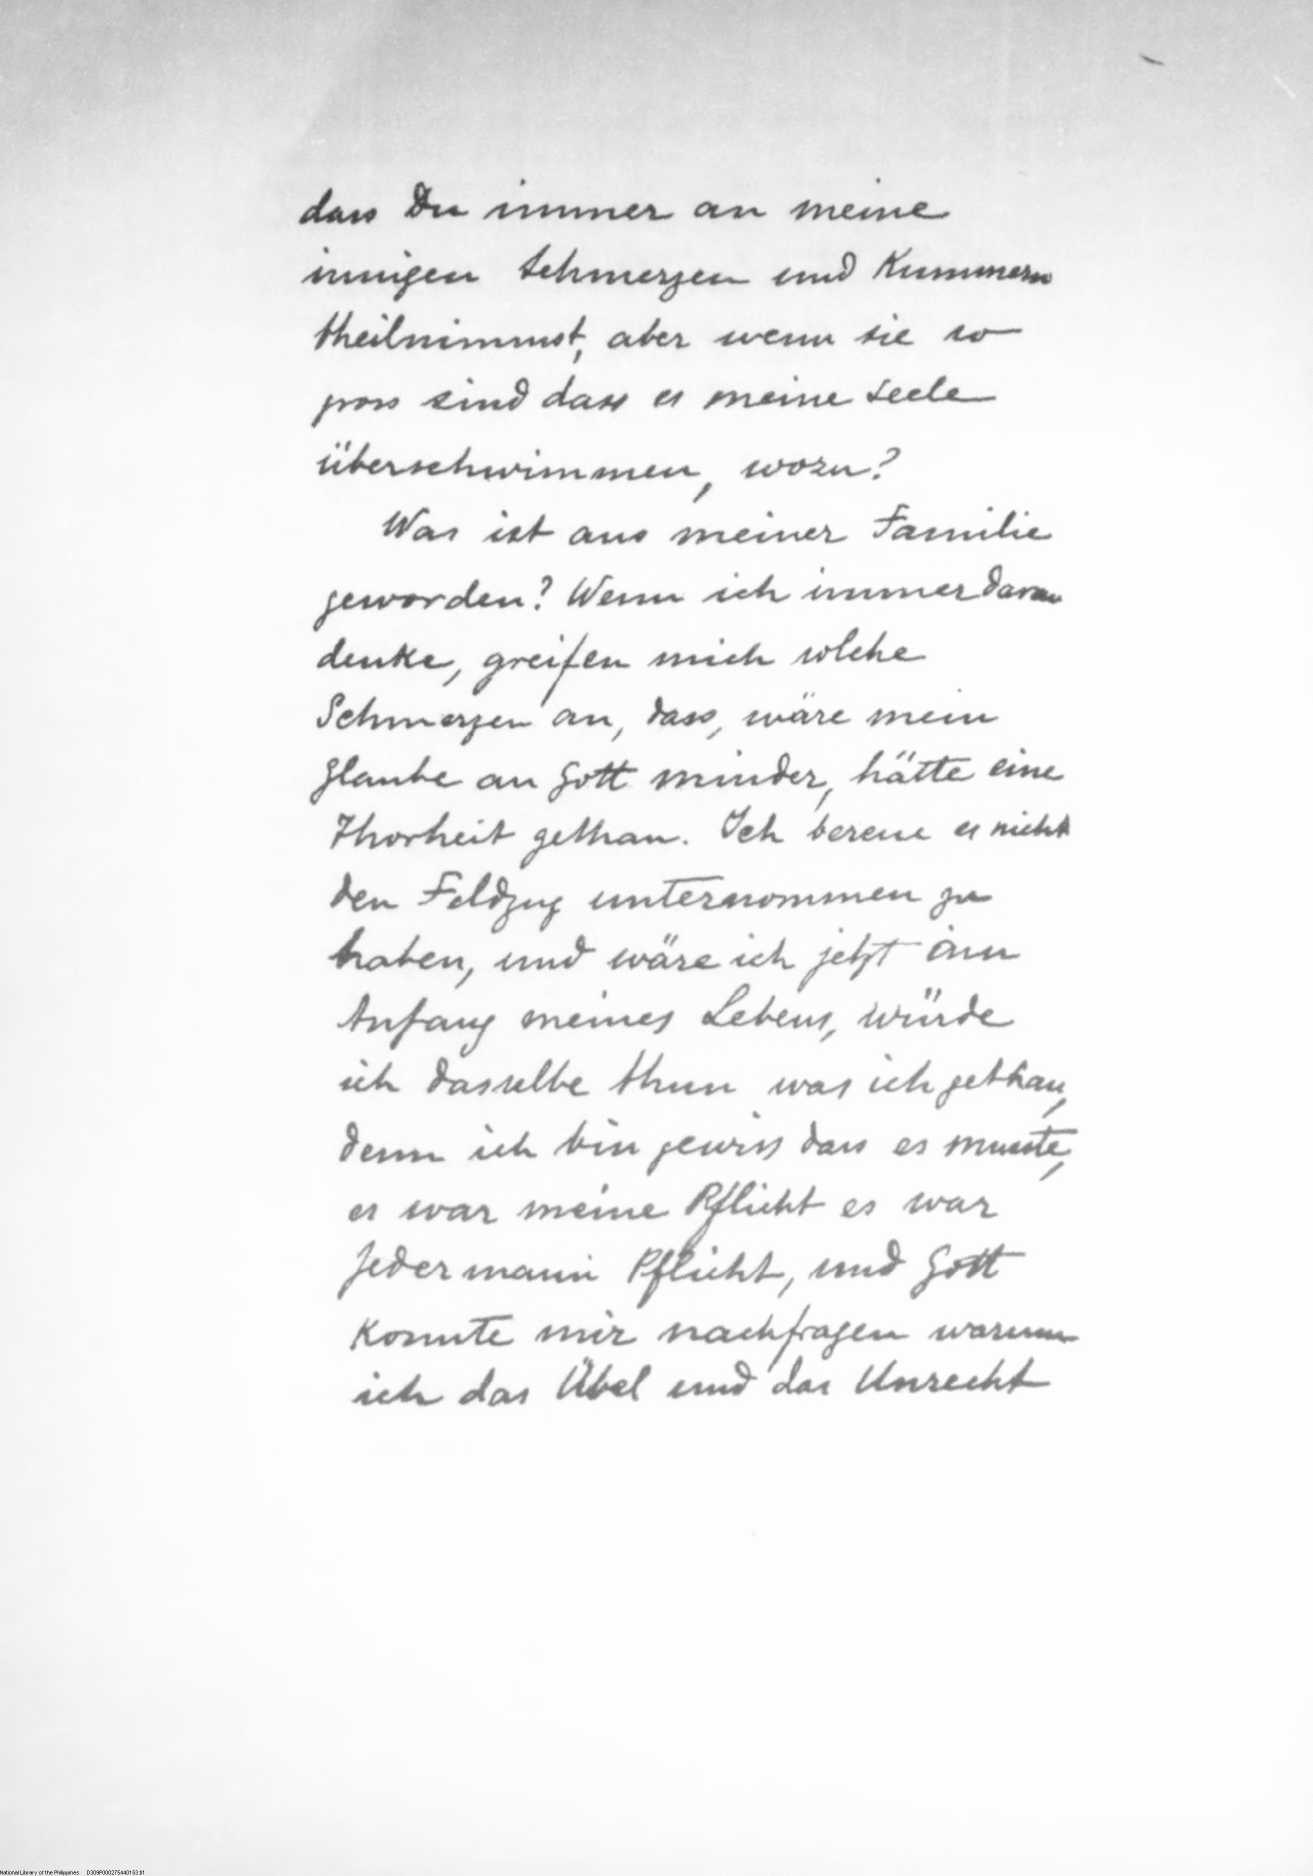 dass Du immer an meine
innigen Schmerzen und Kummern
theilnimmst, aber wenn sie so
gross sind dass es meine Seele
überschwimmen, wozu?
Was ist aus meiner Familie
geworden? Wenn ich immer daran
denke, greifen mich solche
Schmerzen an, dass, wäre mein
Glaube an Gott minder, hätte eine
Thorheit gethan. Ich bereue es nicht
den Feldzug unternommen zu
haben, und wäre ich jetzt
Anfang meines Lebens, würde
ich dasselbe thun was ich gethan,
denn ich bin gewiss dass es musste,
es war meine Pflicht es war
Jedermann Pflicht, und Gott
konnte mir nachfragen warum
ich das Übel und das Unrecht
National Library of the Philippines